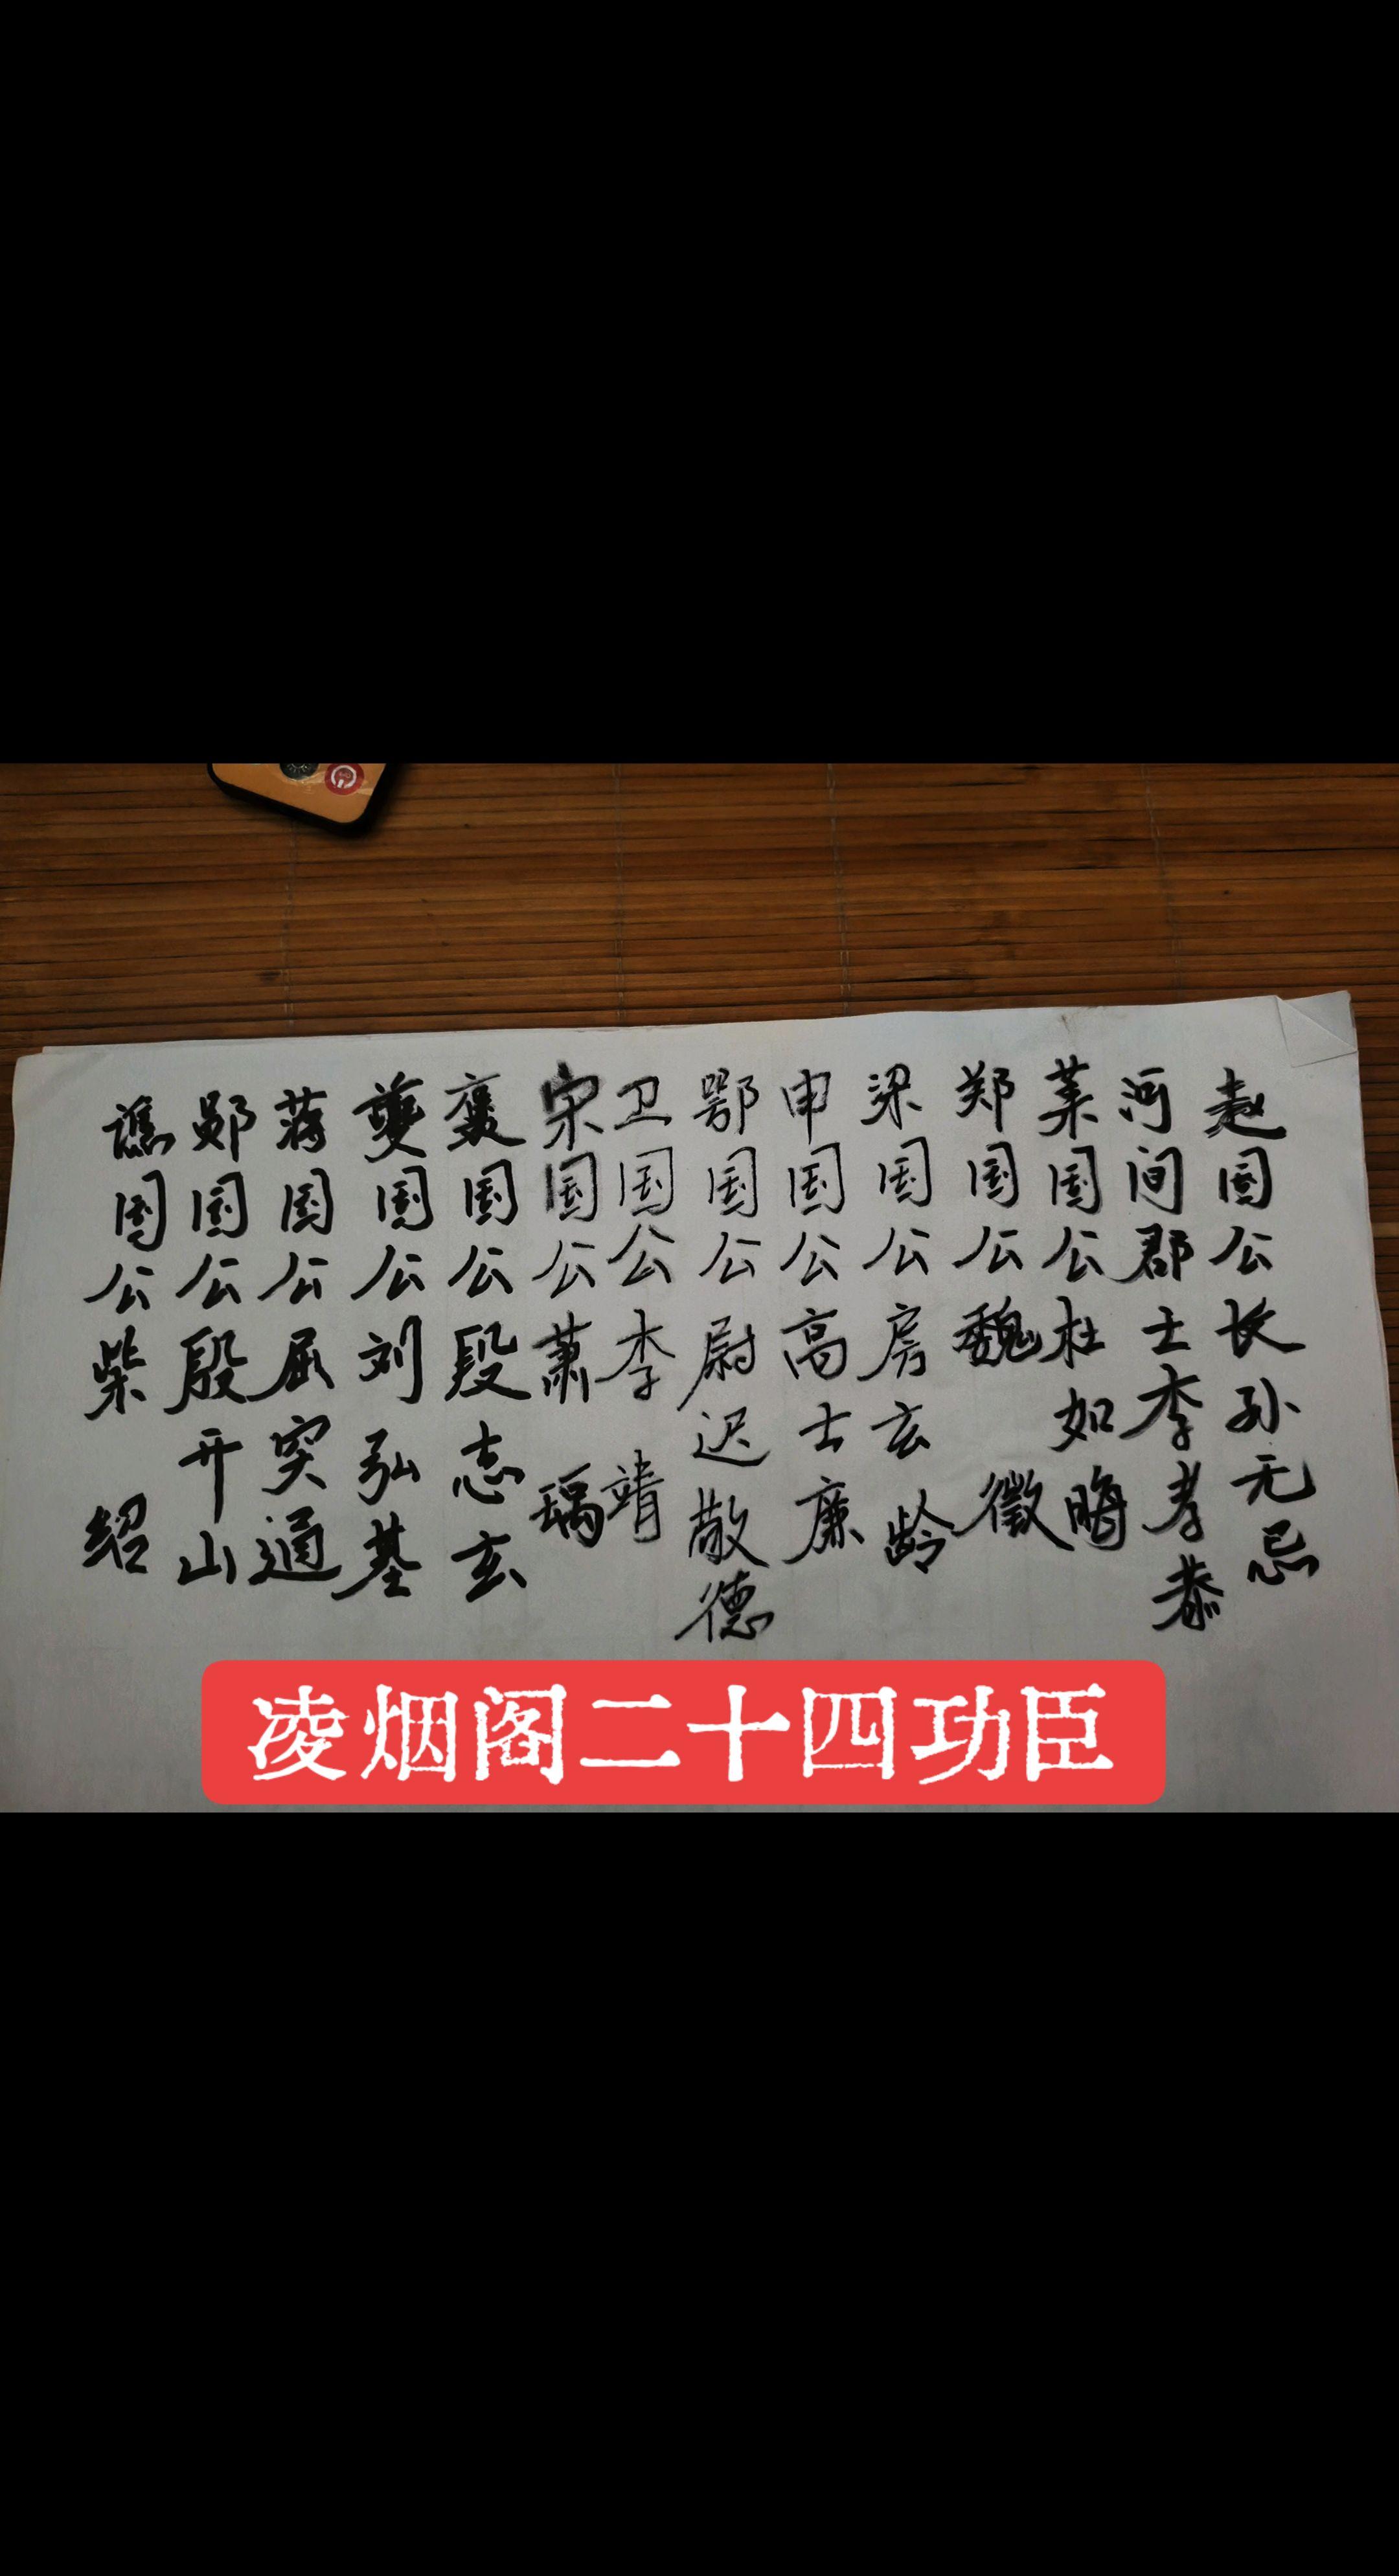 赵国公长孙无忌
河间郡王李孝恭
莱国公杜如晦
郑国公魏徵
梁国公房玄龄
申国公高士廉
鄂国公尉迟敬德
卫国公李靖
宋国公萧瑀
褒国公段志玄
夔国公刘弘基
蒋国公屈突通
郧国公殷开山
譙国公柴绍
凌烟阁二十四功臣